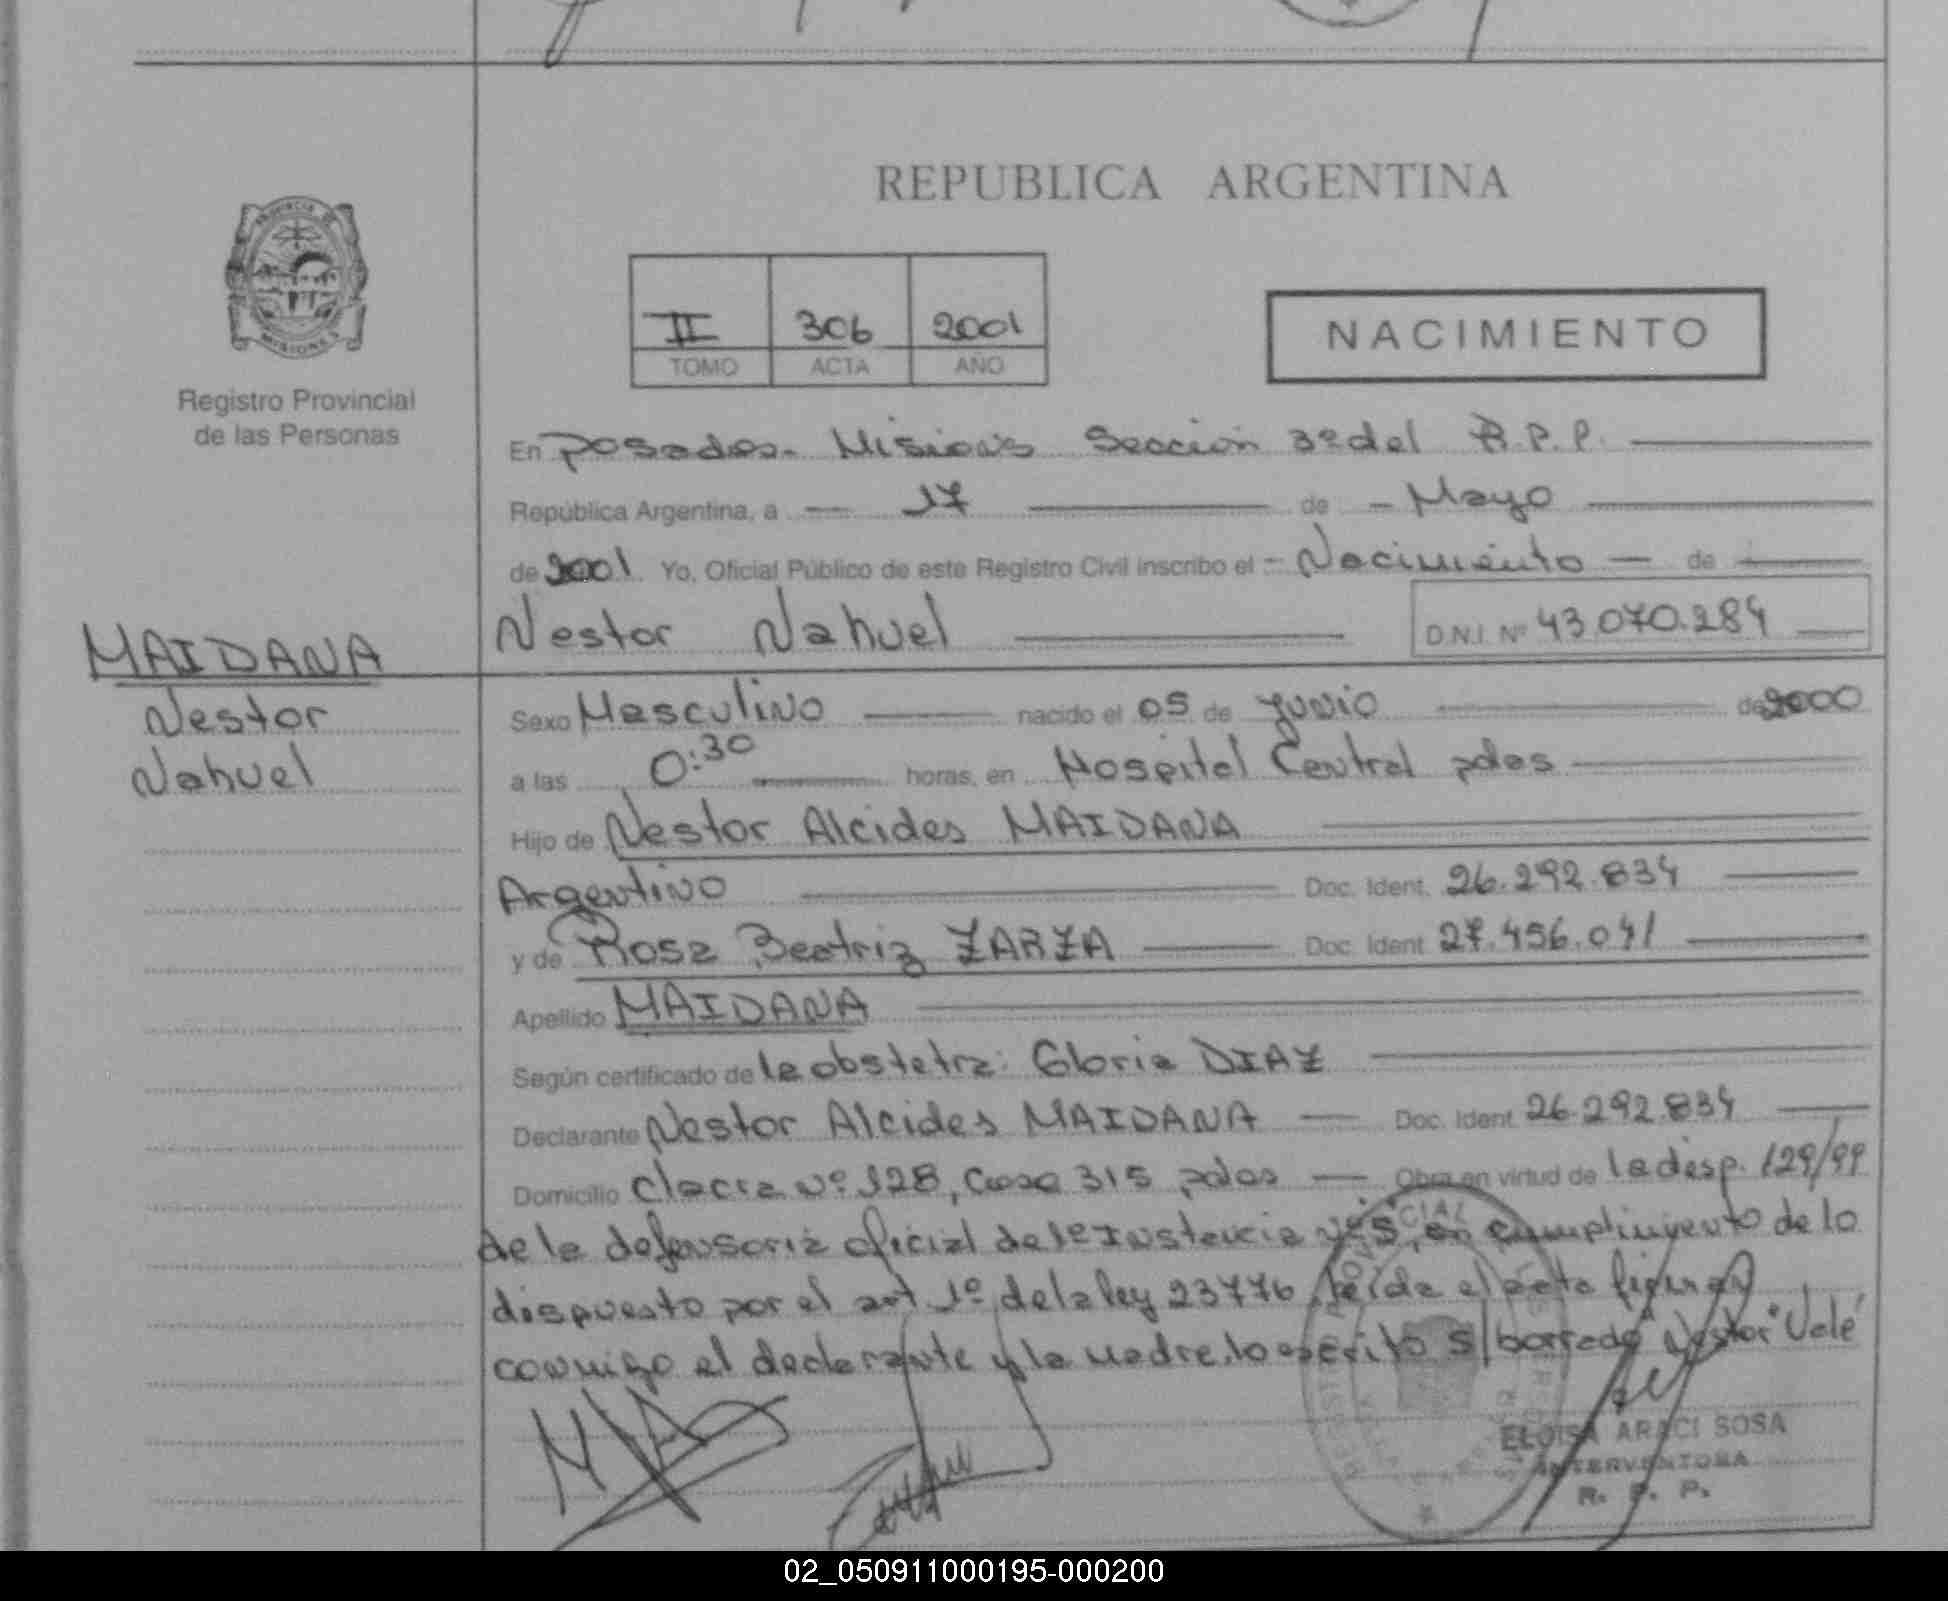 REPUBLICA ARGENTINA
PROVINCIA DE
MISIONES
Registro Provincial
de las Personas
II 306 2001
TOMO ACTA AÑO
NACIMIENTO
En Posadas. Misiones Sección 3º del R.P.P.
República Argentina, a 17 de Mayo
de 2001 Yo, Oficial Público de este Registro Civil inscribo el Nacimiento de
Nestor Nahuel D.N.I. Nº 43.070.284
MAIDANA
Nestor
Nahuel
Sexo Masculino nacido el 05 de Junio de 2000
a las 0:30 horas, en Hospital Central pdas
Hijo de Nestor Alcides MAIDANA
Argentino Doc. Ident. 26.292.834
y de Rosa Beatriz ZARZA Doc. Ident. 27.456.041
Apellido MAIDANA
Según certificado de la obstetra: Gloria DIAZ
Declarante Nestor Alcides MAIDANA Doc. Ident. 26.292.834
Domicilio Chacra Nº 128, Casa 315 pdas Obra en virtud de la desp. 129/99
de la defensoria oficial de 1º Instancia Nº 5, en cumplimiento de lo
dispuesto por el art. 1º de la ley 23776, leída el acta firman
conmigo el declarante y la madre, lo escrito s/borrado "Nestor" Vale
ELOISA ARACI SOSA
INTERVENTORA
R. P. P.
02_050911000195-000200